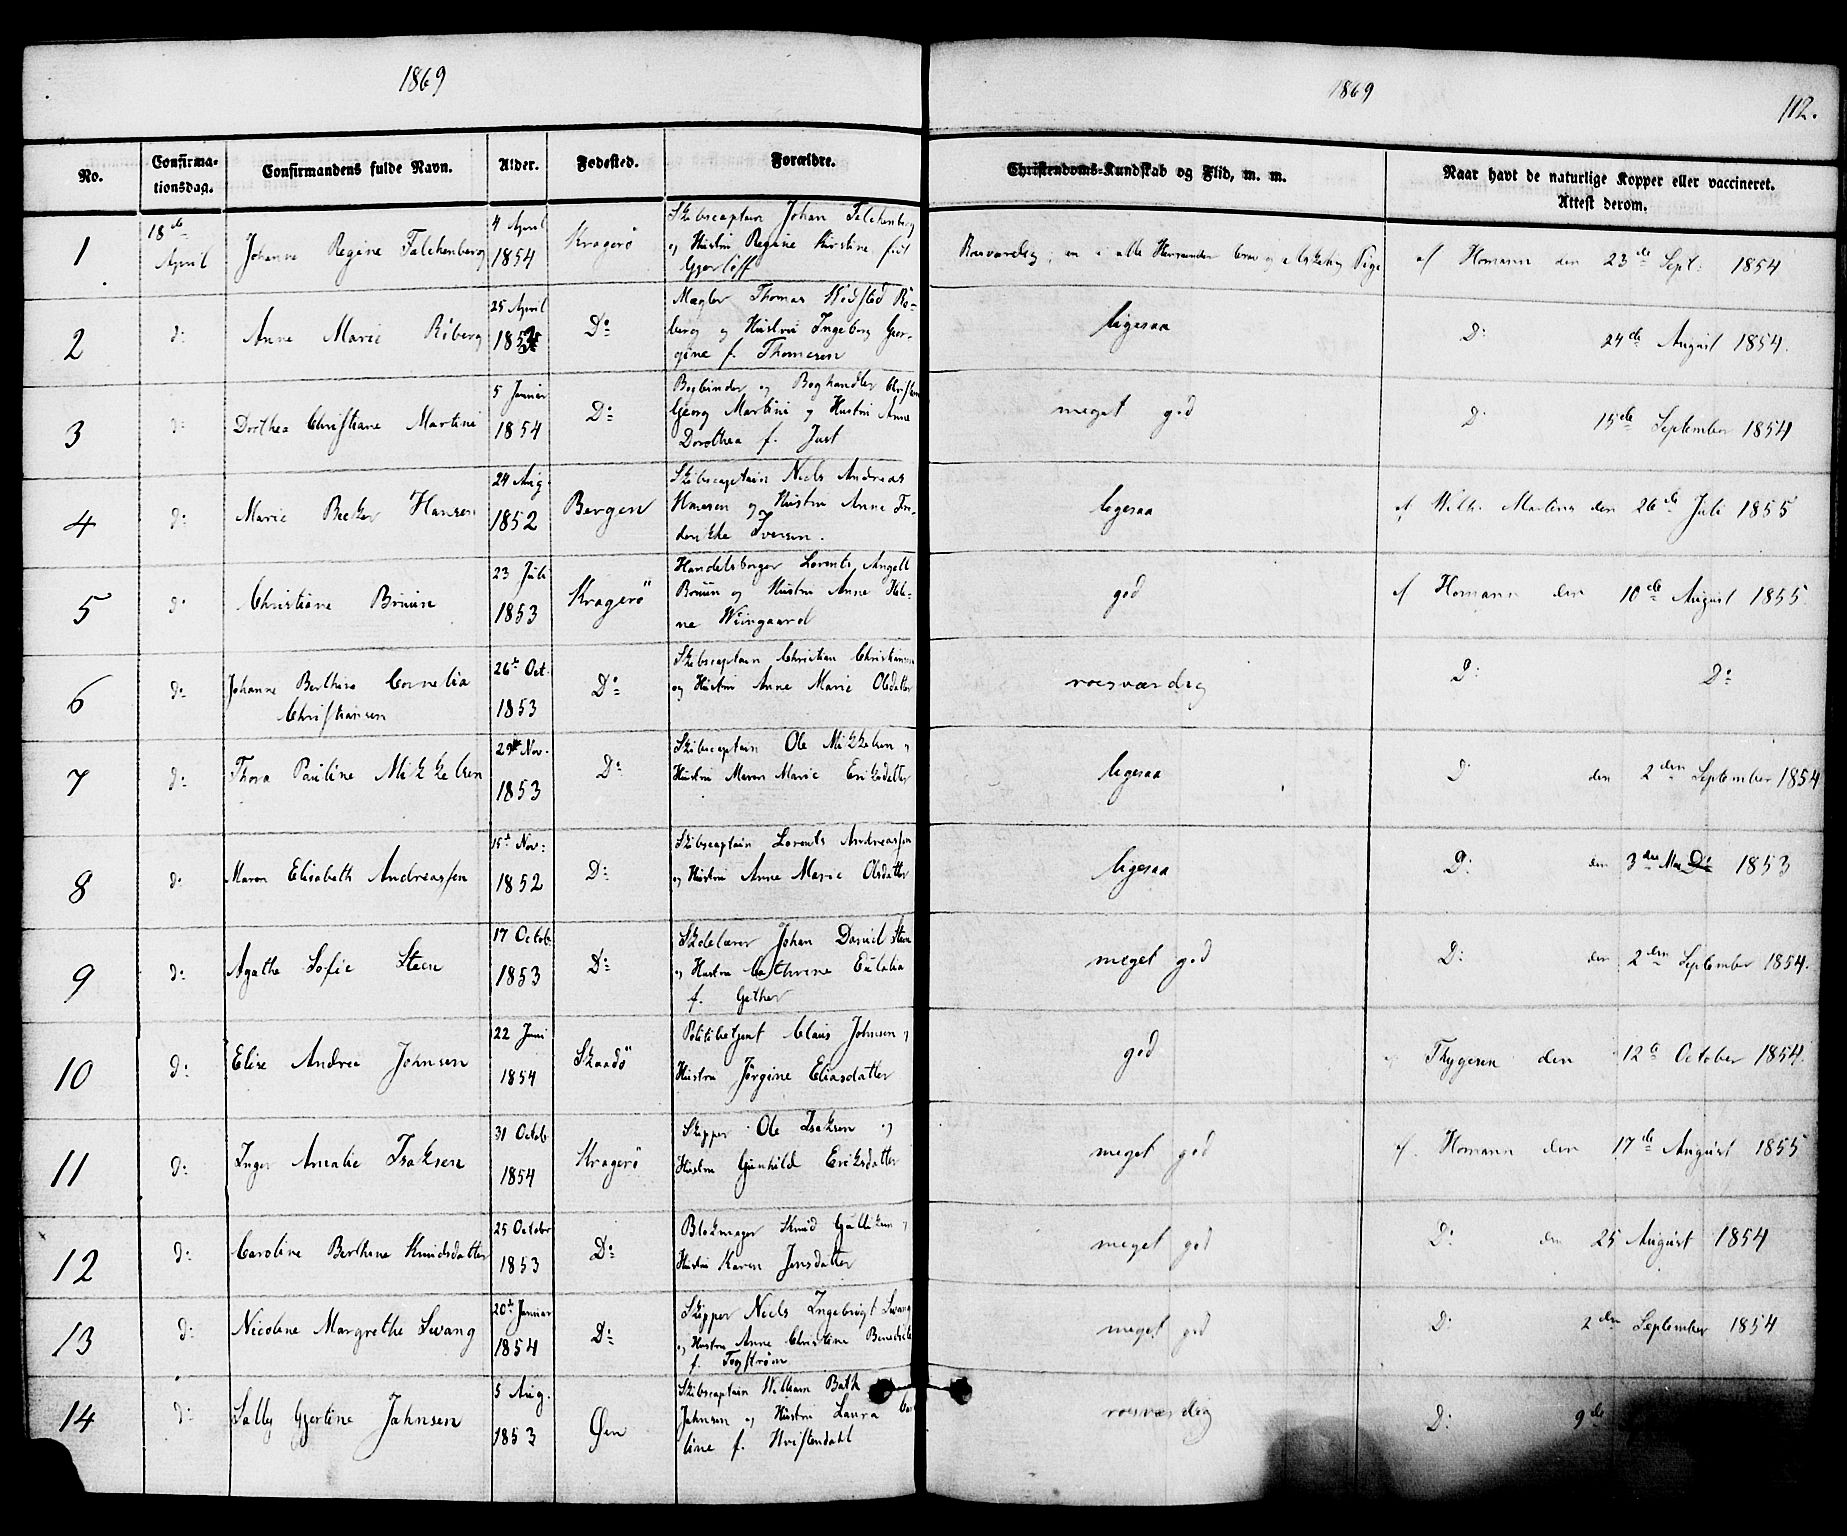 1869
1869
112.
No.
Confirma-
tionsdag.
Confirmandens fulde Navn.
Alder.
Fødested.
Forældre.
Christendoms-Kundskab og Flid, m. m.
Naar havt de naturlige Kopper eller vaccineret.
Attest derom.
1
18de
April
Johanne Regine Falckenberg
4 April
1854
Kragerö
Skibscaptain Johan Falckenberg
og Hustru Regine Kirstine fød
Gjerløff
Roesværdig; en i alle Henseender brav og elskelig Pige
af Homann den 23de Sept: 1854
2
d:
Anne Marie Riberg
25 April
1854
Do
Mægler Thomas Wedsted Ri-
berg og Hustru Ingeborg Geor-
gine f. Thomesen
ligesaa
D: 24de August 1854.
3
d:
Dorthea Christiane Martini
5 Januar
1854
Do
Bogbinder og Boghandler Christian
Georg Martini og Hustru Anne
Dorothea f. Just
meget god
D: 15de September 1854
4
d:
Marie Becker Hansen
24 Aug.
1852
Bergen
Skibscaptain Niels Andreas
Hansen og Hustru Anne Fre-
derikke Iversen.
ligesaa
af Wilh. Martini den 26de Juli 1855
5
d:
Christiane Bruun
23 Juli
1853
Kragerö
Handelsborger Lorents Angell
Bruun og Hustru Anne Hele-
ne Wiingaard
god
af Homann den 10de August 1855.
6
d:
Johanne Berthine Cornelia
Christiansen
26de Oct.
1853
Do
Skibscaptain Christian Christiansen
og Hustru Anne Marie Olsdatter
roesværdig
D: Do
7
d:
Thora Pauline Mikkelsen
29 Nov.
1853
D:
Skibscaptain Ole Mikkelsen og
Hustru Maren Marie Eriksdatter
ligesaa
D: den 2den September 1854
8
d:
Maren Elisabeth Andreassen
15de Nov:
1852
D:
Skibscaptain Lorents Andreassen
og Hustru Anne Marie Olsdatter
ligesaa
D: den 3die 1853
9
d:
Agathe Sofie Steen
17 Octob.
1853
D:
Skolelærer Johan Daniel Steen
og Hustru Cathrine Eulalia
f. Gether
meget god
D: den 2den September 1854.
10
d:
Elise Andrea Johnsen
22 Juni
1854
Skaadö
Politibetjent Claus Johnsen og
Hustru Jörgine Eliasdatter
god
Thygesen den 12te October 1854.
11
d:
Inger Amalie Isaksen
31 Octob
1854
Kragerö
Skipper Ole Isaksen og
Hustru Gunhild Eriksdatter
meget god
af. Homann den 17de August 1855
12
d:
Caroline Berthine Knudsdatter
25 October
1853
D:
Blokmager Knud Gulliksen og
Hustru Karen Jensdatter
meget god
D: den 25 August 1854
13
d:
Nicoline Margrethe Swang
20de Januar
1854
D:
Skipper Niels Ingebrigt Swang
og Hustru Anne Christine Benedicte
f. Fogström
meget god
D: 2den September 1854
14
d:
Sally Gjertine Jahnsen
5 Aug.
1853
Øen
Skibscaptain William Bath
Jahnsen og Hustru Laura Caro
line f. Hvistendahl
roesværdig
D: 9de